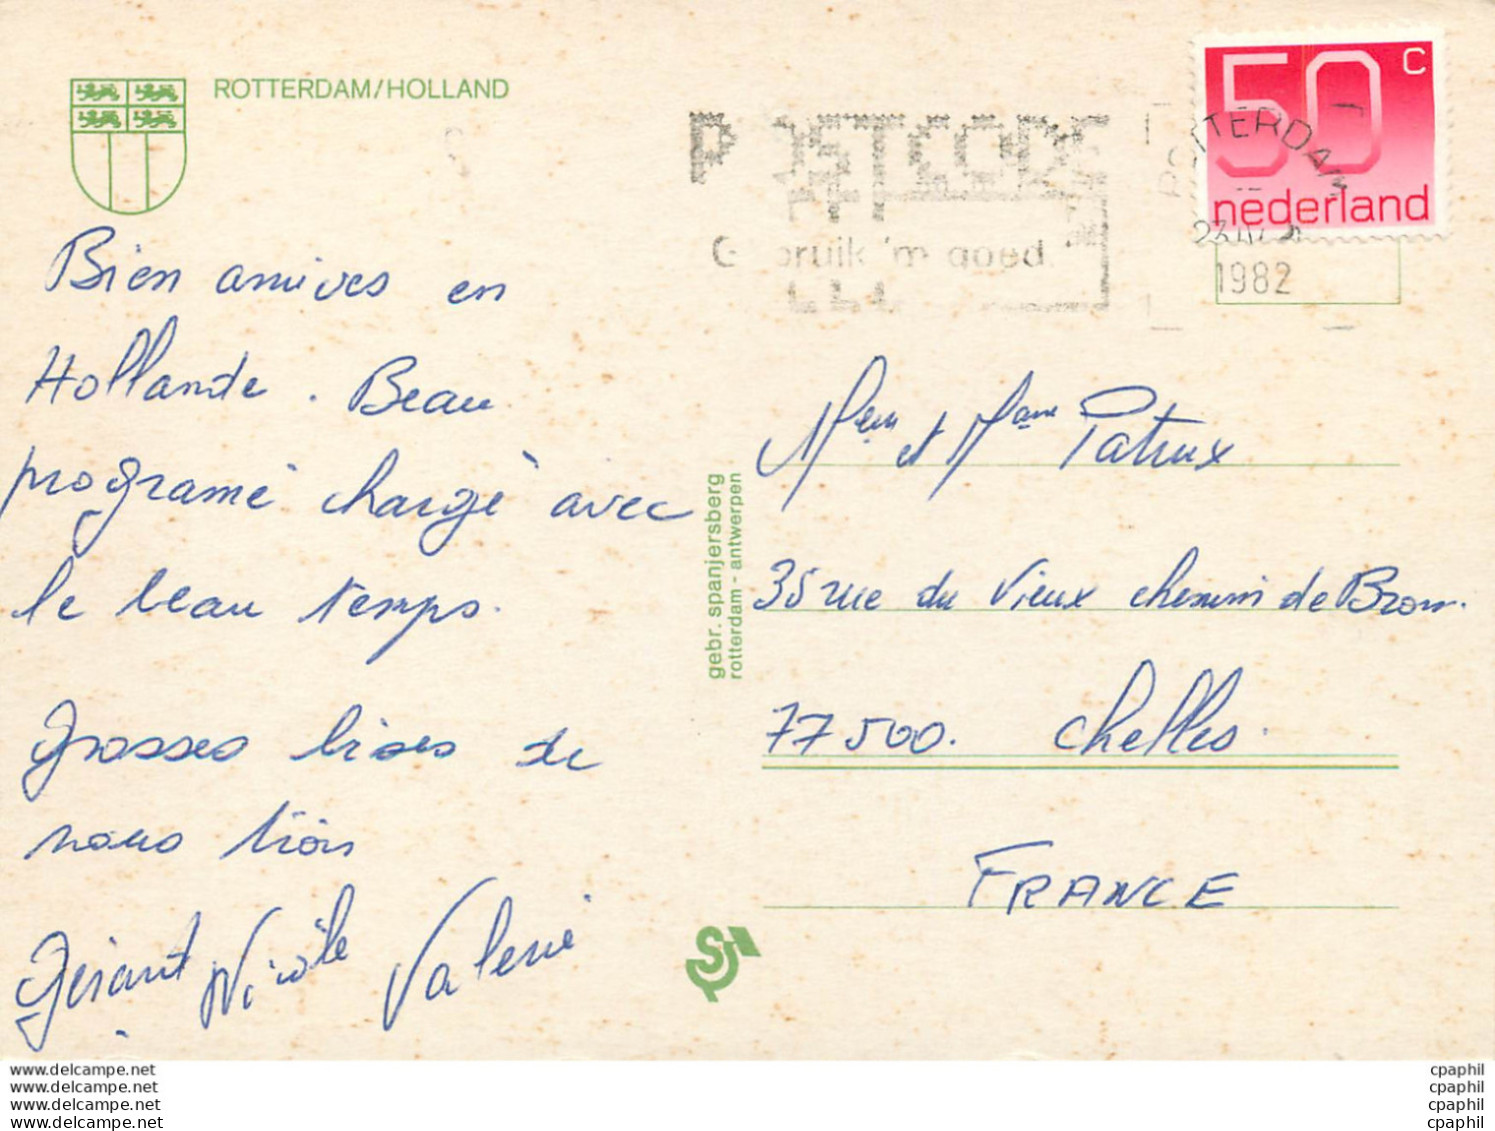 ROTTERDAM/HOLLAND
50 c
nederland
POSTCODE
Gebruik 'm goed.
ROTTERDAM
1982
Bien arrivés en
Hollande. Beau
programé chargé avec
le beau temps.
Grosses bises de
nous trois
Gérant Nicole Valerie
gebr. spanjersberg
rotterdam - antwerpen
et
35 rue du Vieux chemin de
77500. Chelles.
FRANCE
www.delcampe.net
www.delcampe.net
www.delcampe.net
www.delcampe.net
cpaphil
cpaphil
cpaphil
cpaphil